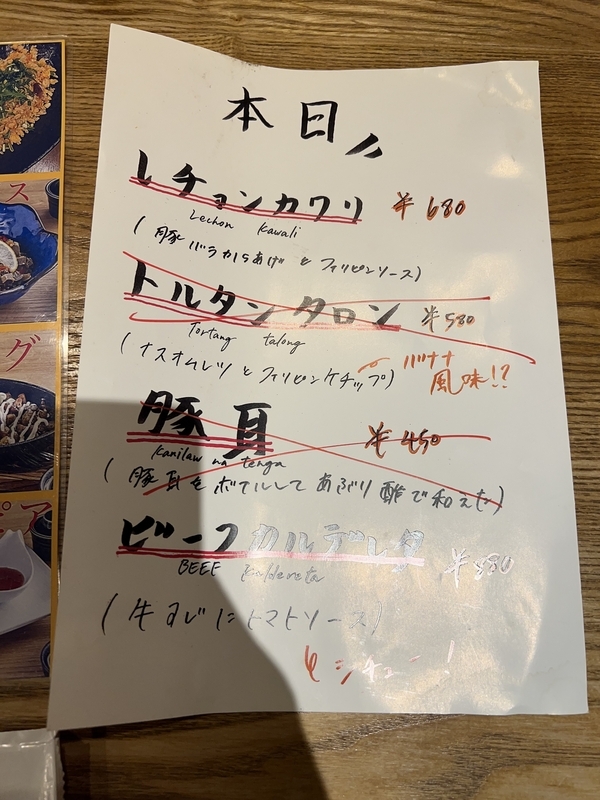 本日〃
レチョンカワリ ¥680
Lechon Kawali
(豚バラからあげとフィリピンソース)
トルタンタロン ¥580
Tortang talong
(ナスオムレツとフィリピンケチップ) バナナ
風味!?
豚耳 ¥450
Kanilaw na tenga
(豚耳をボイルしてあぶり酢で和えた)
ビーフカルデレタ ¥880
BEEF Kaldereta
(牛すじにトマトソース)
シチュー!
ス
グ
ピア